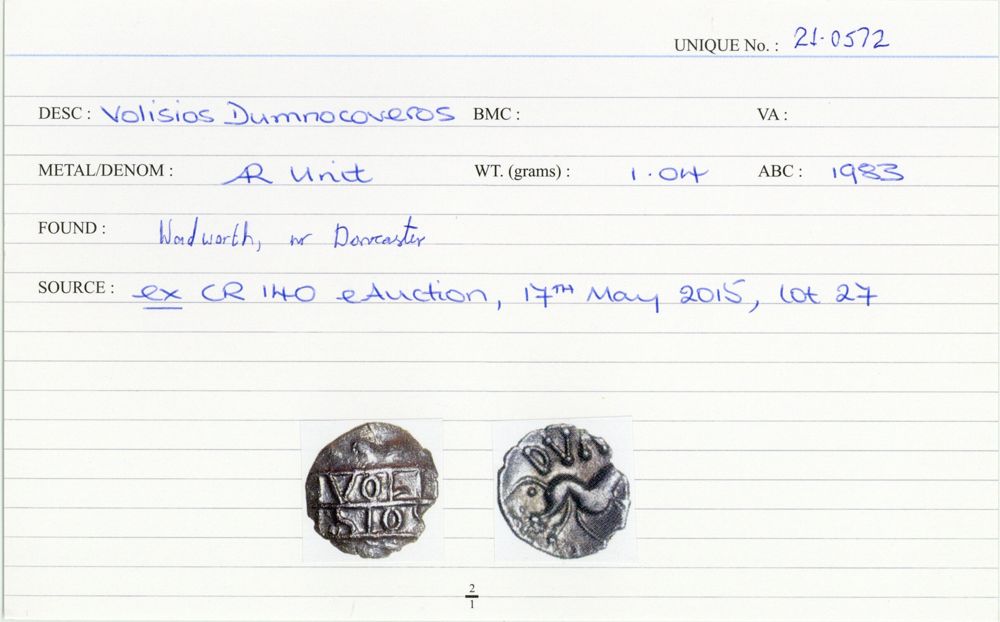 UNIQUE No. : 21·0572
DESC : Volisios Dumnocoveros BMC : VA :
METAL/DENOM : AR Unit WT. (grams) : 1·04 ABC : 1983
FOUND : Wadworth, nr Doncaster
SOURCE : ex CR 140 eAuction, 17TH May 2015, lot 27
VOL
SIO
DVM
2
1